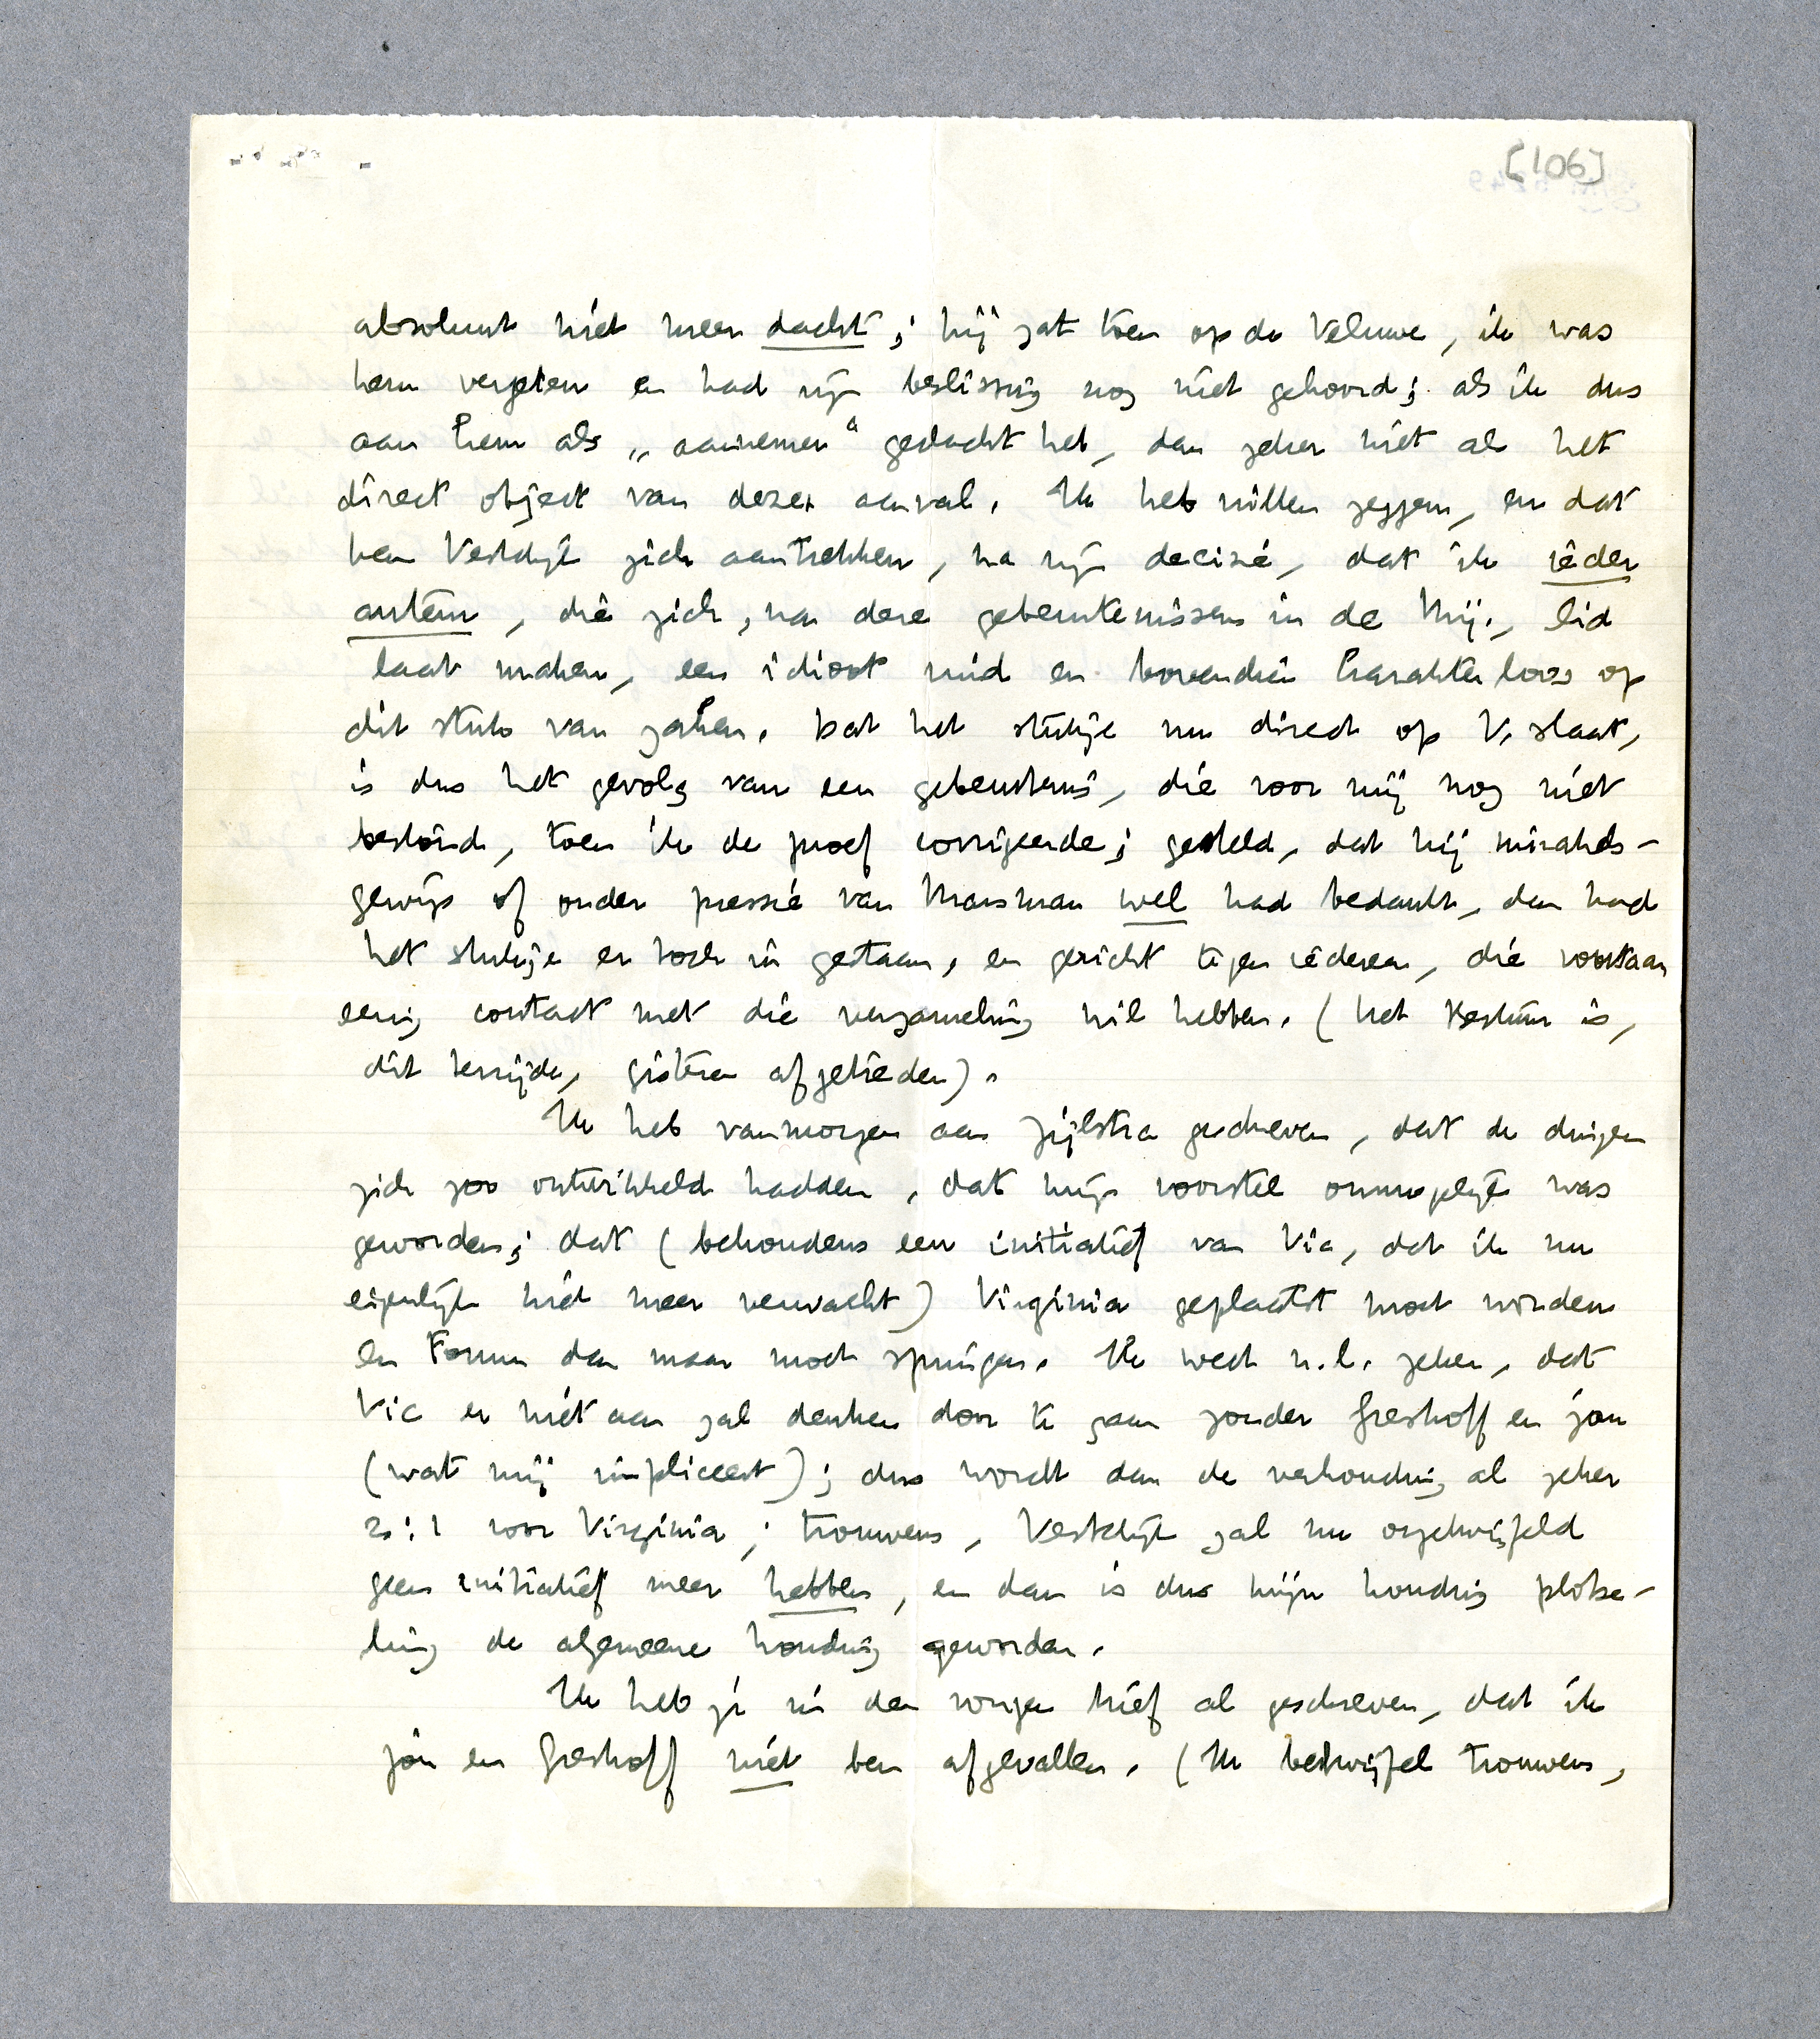 [106]
absoluut niet meer dacht; hij zat toen op de Veluwe, ik was
hem vergeten en had zijn beslissing nog niet gehoord; als ik dus
aan hem als „aannemer" gedacht heb, dan zeker niet als het
direct object van dezen aanval. Ik heb willen zeggen, en dat
kan Vestdijk zich aantrekken, na zijn decisie, dat ik ieder
auteur, die zich, na deze gebeurtenissen in de Mij., lid
laat maken, een idioot vind en bovendien karakterloos op
dit stuk van zaken. Dat het stukje nu direct op V. slaat,
is dus het gevolg van een gebeurtenis, die voor mij nog niet
bestond, toen ik de proef corrigeerde; gesteld, dat hij mirakels-
gewijs of onder pressie van Marsman wel had bedankt, dan had
het stukje er toch in gestaan, en gericht tegen iedereen, die voortaan
eenig contact met die verzameling wil hebben. (Het Bestuur is,
dit terzijde, gisteren afgetreden).
Ik heb vanmorgen aan Zijlstra geschreven, dat de dingen
zich zoo ontwikkeld hadden, dat mijn voorstel onmogelijk was
geworden; dat (behoudens een initiatief van Vic, dat ik nu
eigenlijk niet meer verwacht) Virginia geplaatst moet worden
en Forum dan maar moet springen. Ik weet n.l. zeker, dat
Vic er niet aan zal denken door te gaan zonder Greshoff en jou
(wat mij impliceert); dus wordt dan de verhouding al zeker
2:1 voor Virginia; trouwens, Vestdijk zal nu ongetwijfeld
geen initiatief meer hebben, en dan is dus mijn houding plotse-
ling de algemeene houding geworden.
Ik heb je in den vorigen brief al geschreven, dat ik
jou en Greshoff niet ben afgevallen. (Ik betwijfel trouwens,